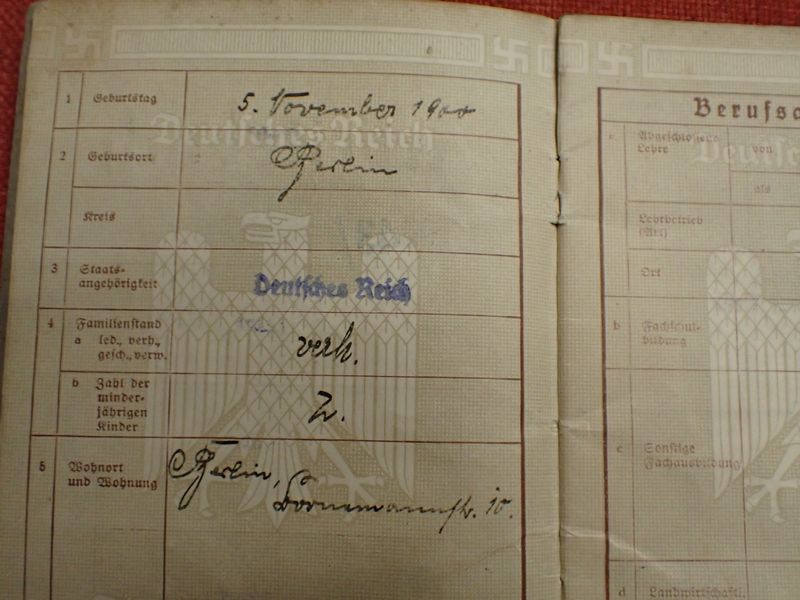 1 Geburtstag 5. November 1900
Deutsches Reich
2 Geburtsort Berlin
Kreis
3 Staats-
angehörigkeit Deutsches Reich
4 Familienstand
a led., verh.,
gesch., verw. verh.
b Zahl der
minder-
jährigen
Kinder 2.
5 Wohnort
und Wohnung Berlin,
Bornemannstr. 10.
Berufsa
a Abgeschlossene
Lehre von
als
Lehrbetrieb
(Art)
Ort
b Fachschul-
bildung
c Sonstige
Fachausbildung
d Landwirtschaftl.